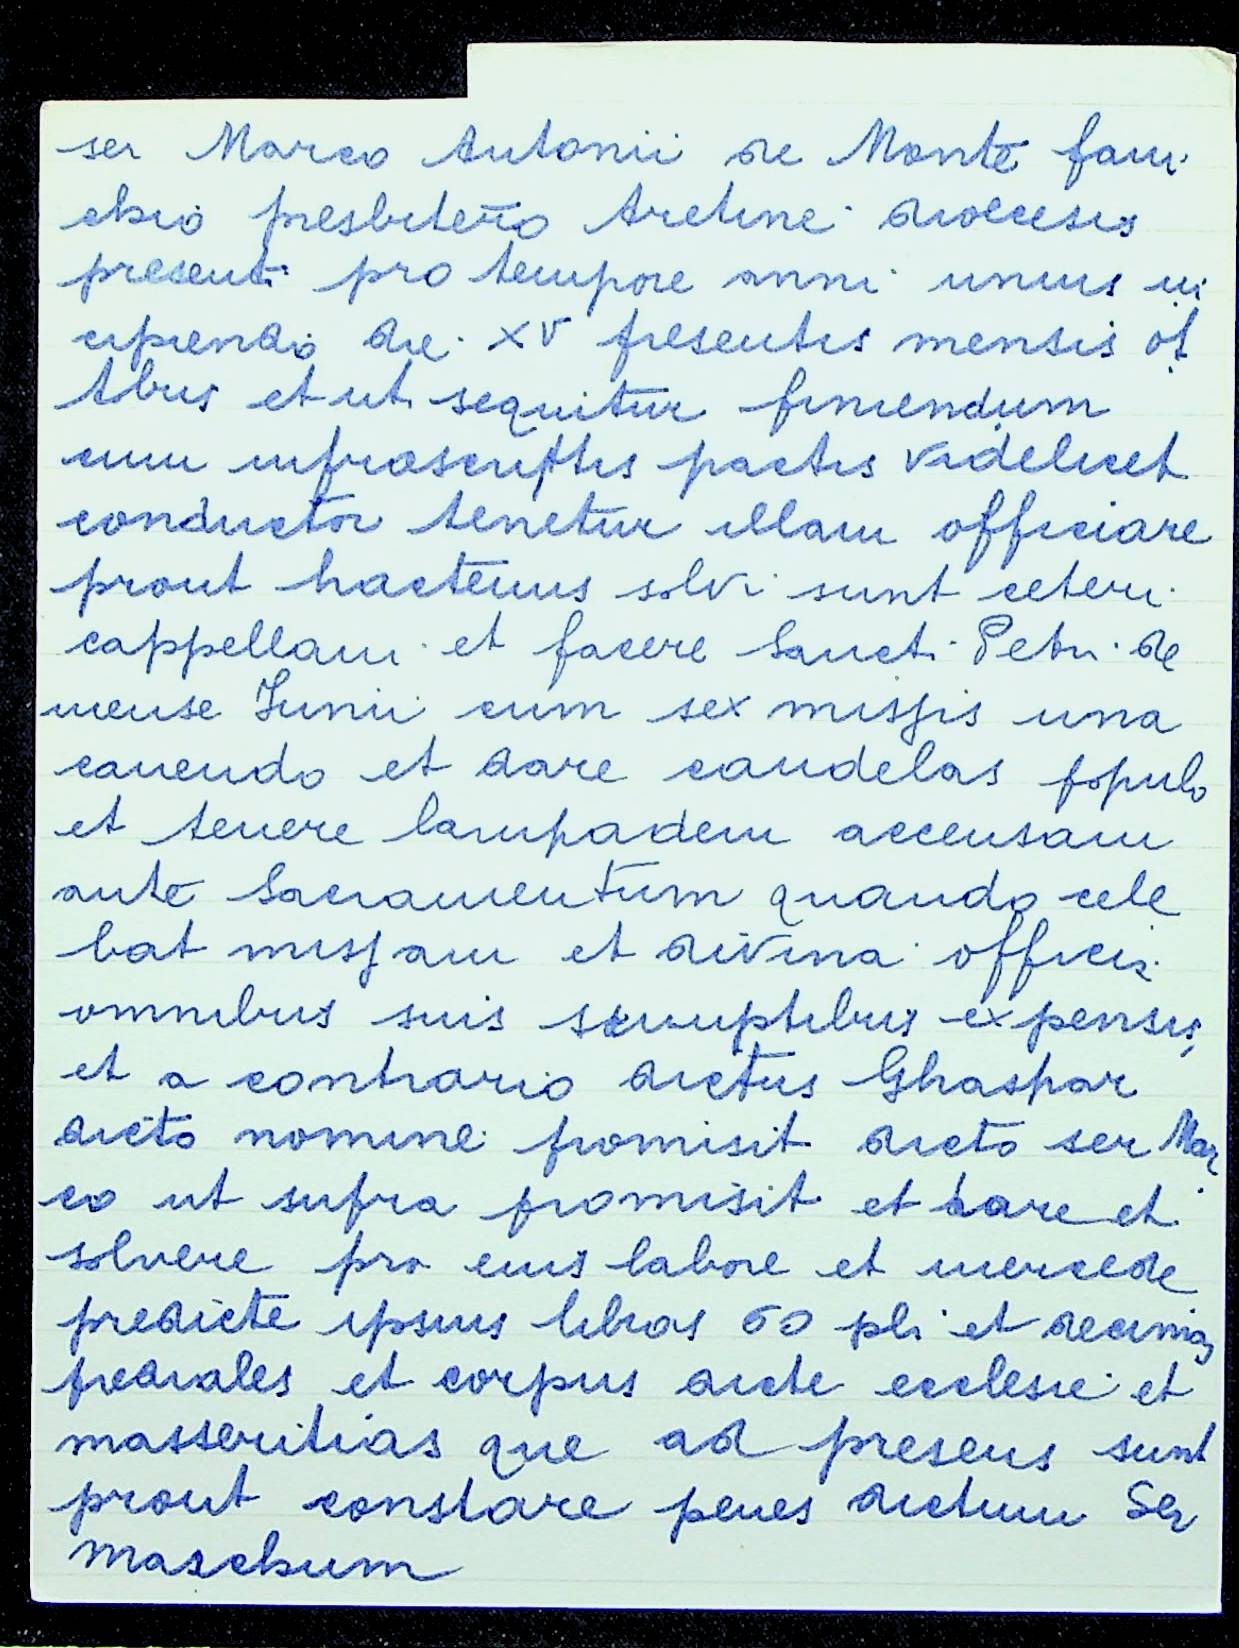 ser Marco Antonii de Monte fani
chio presbitero Aretine diocesis
presenti pro tempore anni unius in
cipiendo die XV presentis mensis ot
tbris et ut sequitur finiendum
cum infrascriptis pactis videlicet
conductor tenetur illam officiare
prout hactenus solvi sunt ceteri
cappellani et facere Sancti Petri de
mense Junii cum sex missis una
canendo et dare candelas populo
et tenere lampadem accensam
ante Sacramentum quando cele
bat missam et divina officia
omnibus suis sumptibus expensis,
et a contrario dictus Ghaspar
dicto nomine promisit dicto ser Mar
co ut supra promisit et dare et
solvere pro eius labore et mercede
predicte ipsius libras 60 pli et decimas
prediales et corpus dicte ecclesie et
masseritias que ad presens sunt
prout constare penes dictum Ser
Marchum